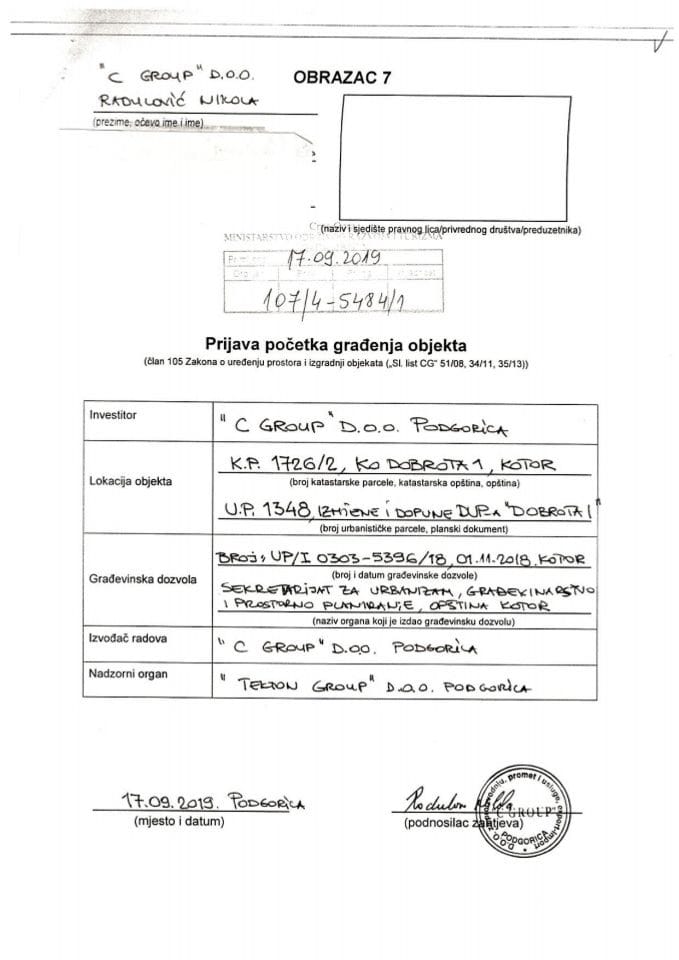 "C GROUP" D.O.O.
RADULOVIĆ NIKOLA
(prezime, očevo ime i ime)
OBRAZAC 7
(naziv i sjedište pravnog lica/privrednog društva/preduzetnika)
MINISTARSTVO
17.09.2019
107/4-5484/1
Prijava početka građenja objekta
(član 105 Zakona o uređenju prostora i izgradnji objekata („Sl. list CG" 51/08, 34/11, 35/13))
Investitor
"C GROUP" D.O.O. PODGORICA
Lokacija objekta
K.P. 1726/2, KO DOBROTA 1, KOTOR
(broj katastarske parcele, katastarska opština, opština)
U.P. 1348, IZMJENE I DOPUNE DUP-A "DOBROTA I"
(broj urbanističke parcele, planski dokument)
Građevinska dozvola
BROJ: UP/I 0303-5396/18, 01.11.2018. KOTOR
(broj i datum građevinske dozvole)
SEKRETARIJAT ZA URBANIZAM, GRAĐEVINARSTVO
I PROSTORNO PLANIRANJE, OPŠTINA KOTOR
(naziv organa koji je izdao građevinsku dozvolu)
Izvođač radova
"C GROUP" D.O.O. PODGORICA
Nadzorni organ
"TEKTON GROUP" D.O.O. PODGORICA
17.09.2019. PODGORICA
(mjesto i datum)
(podnosilac zahtjeva)
promet i usluge, export-import
C GROUP
PODGORICA
D.O.O.